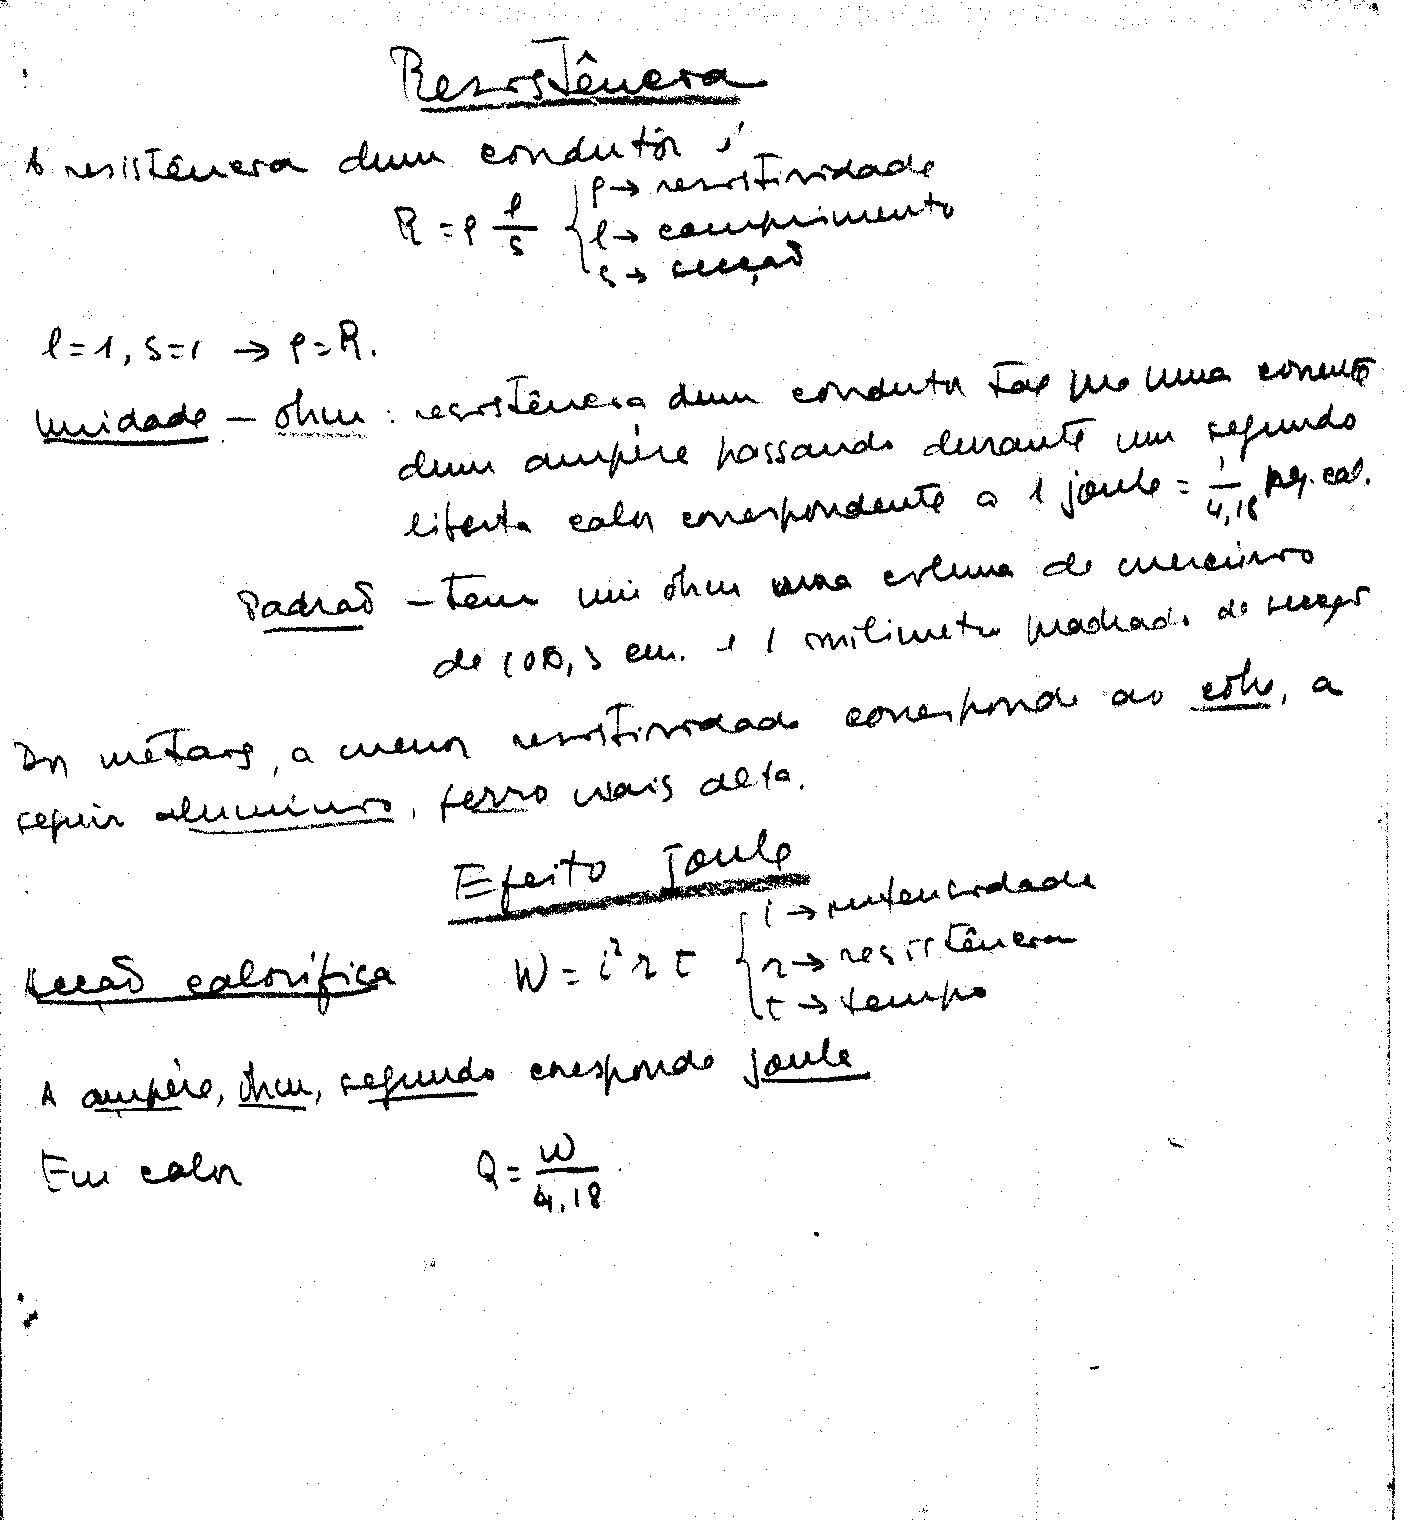 Resistência
A resistência dum condutôr é
R = ρ l/s { ρ → resistividade
l → comprimento
s → secção
l=1, s=1 → ρ=R.
Unidade – ohm : resistência dum condutor tal que uma corrente
dum ampére passando durante um segundo
liberta calor correspondente a 1 joule = 1/4,18 peq. cal.
Padraõ – Tem um ohm uma coluna de mercúrio
de 106,3 cm. e 1 milimetro quadrado de secçaõ
Dos métais, a menor resistividade corresponde ao cobre, a
seguir aluminio, ferro mais alta.
Efeito Joule
Acçaõ calorifica W = i² r t { i → intensidade
r → resistência
t → tempo
A ampére, ohm, segundo corresponde joule
Em calor Q = W/4,18